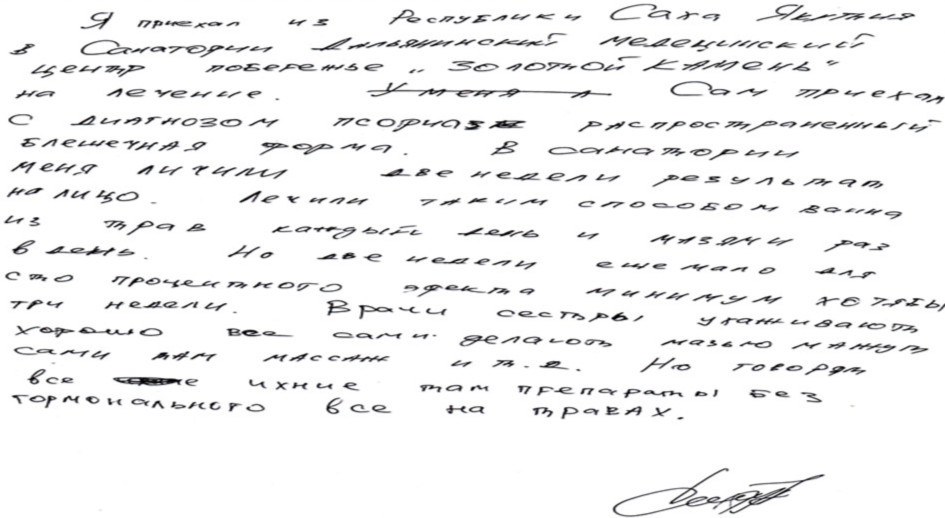 Я приехал из Республики Саха Якутия
в Санатории Дальянинский медецинский
центр побереже „Золотной Камень“
на лечение. У меня л Сам приехал
с диагнозом псориаз распространенный
блешечная форма. В санатории
меня личили две недели результат
на лицо. Лечили таким способом ванна
из трав каждый день и мазями раз
в день. Но две недели еше мало для
сто процентного эфекта минимум хотябы
три недели. Врачи сестры ухаживают
хорошо все сами делают мазью мажут
сами вам массаж и т.д. Но говорят
все ихние там препараты без
гормонального все на травах.